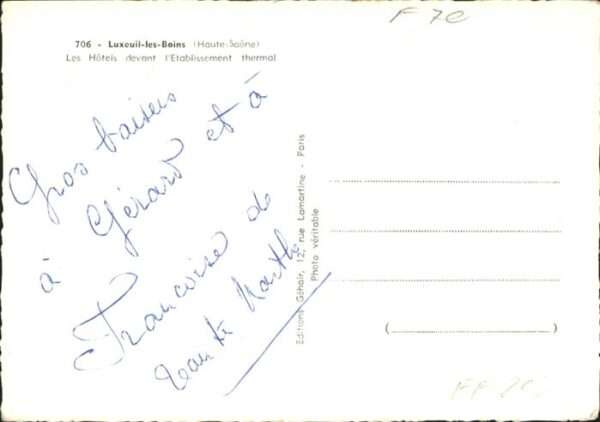 F 7e
706 - Luxeuil-les-Bains (Haute-Saône)
Les Hôtels devant l'Etablissement thermal
Gros baisers
à Gérard et à
Françoise de
tante Marthe
Editions Géhair, 12, rue Lamartine - Paris
Photo véritable